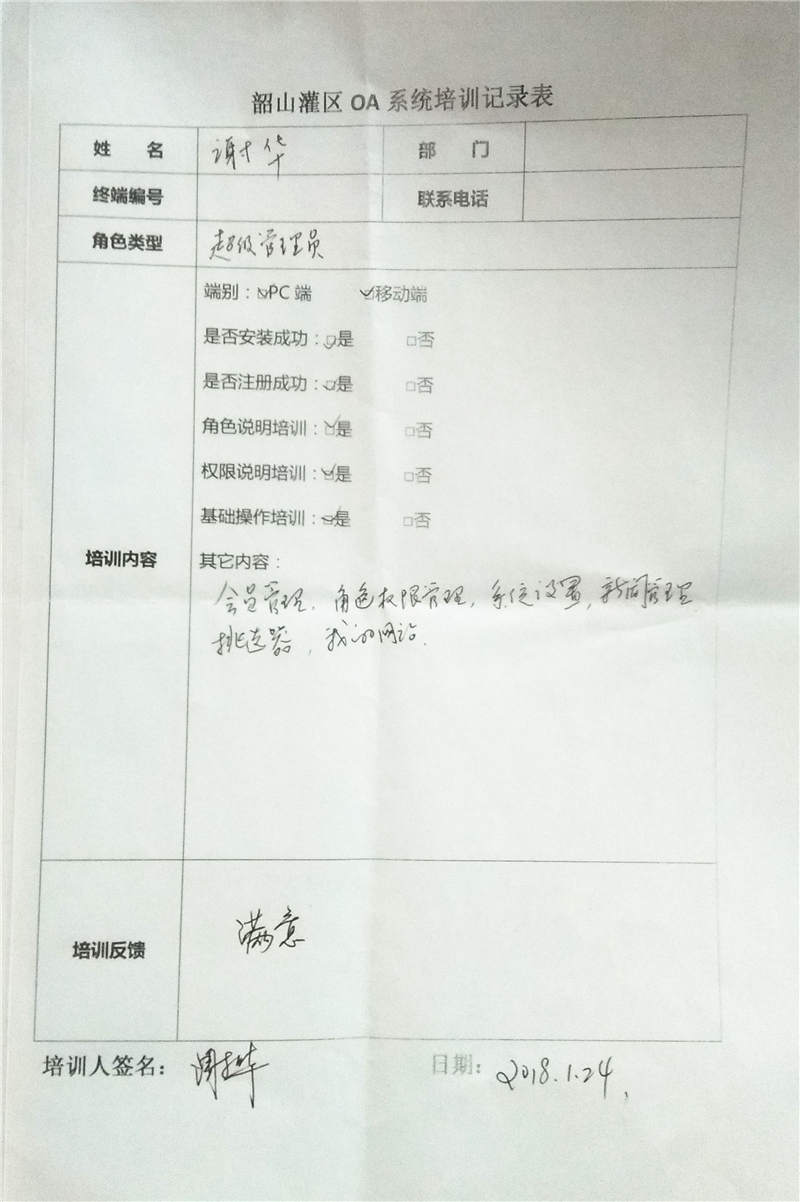 韶山灌区 OA 系统培训记录表
姓 名 谢华 部 门
终端编号 联系电话
角色类型 超级管理员
端别：☑PC 端 ☑移动端
是否安装成功：☑是 □否
是否注册成功：☑是 □否
角色说明培训：☑是 □否
权限说明培训：☑是 □否
基础操作培训：☑是 □否
培训内容
其它内容：
会员管理, 角色权限管理, 系统设置, 新闻管理
挑选器, 我的网站.
培训反馈 满意
培训人签名： 日期： 2018.1.24